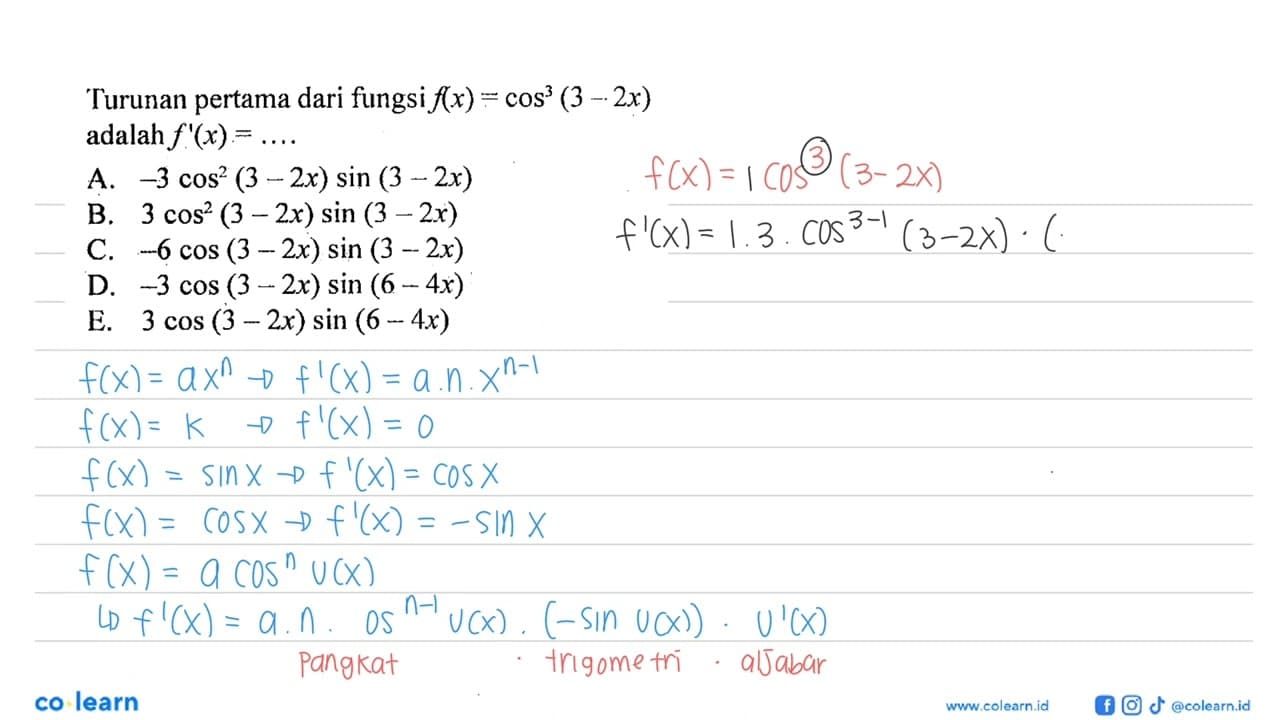 Turunan pertama dari fungsi f(x) = cos³ (3 – 2x)
adalah f'(x) = ....
A. –3 cos² (3 – 2x) sin (3 – 2x)
B. 3 cos² (3 – 2x) sin (3 – 2x)
C. –6 cos (3 – 2x) sin (3 – 2x)
D. –3 cos (3 – 2x) sin (6 – 4x)
E. 3 cos (3 – 2x) sin (6 – 4x)
f(x) = 1 cos³ (3-2x)
f'(x) = 1.3. cos³⁻¹ (3-2x) · (
f(x) = axⁿ → f'(x) = a.n.xⁿ⁻¹
f(x) = k → f'(x) = 0
f(x) = sin x → f'(x) = cos x
f(x) = cos x → f'(x) = -sin x
f(x) = a cosⁿ u(x)
↳ f'(x) = a.n. osⁿ⁻¹ u(x). (-sin u(x)). u'(x)
pangkat · trigometri · aljabar
co learn
www.colearn.id @colearn.id